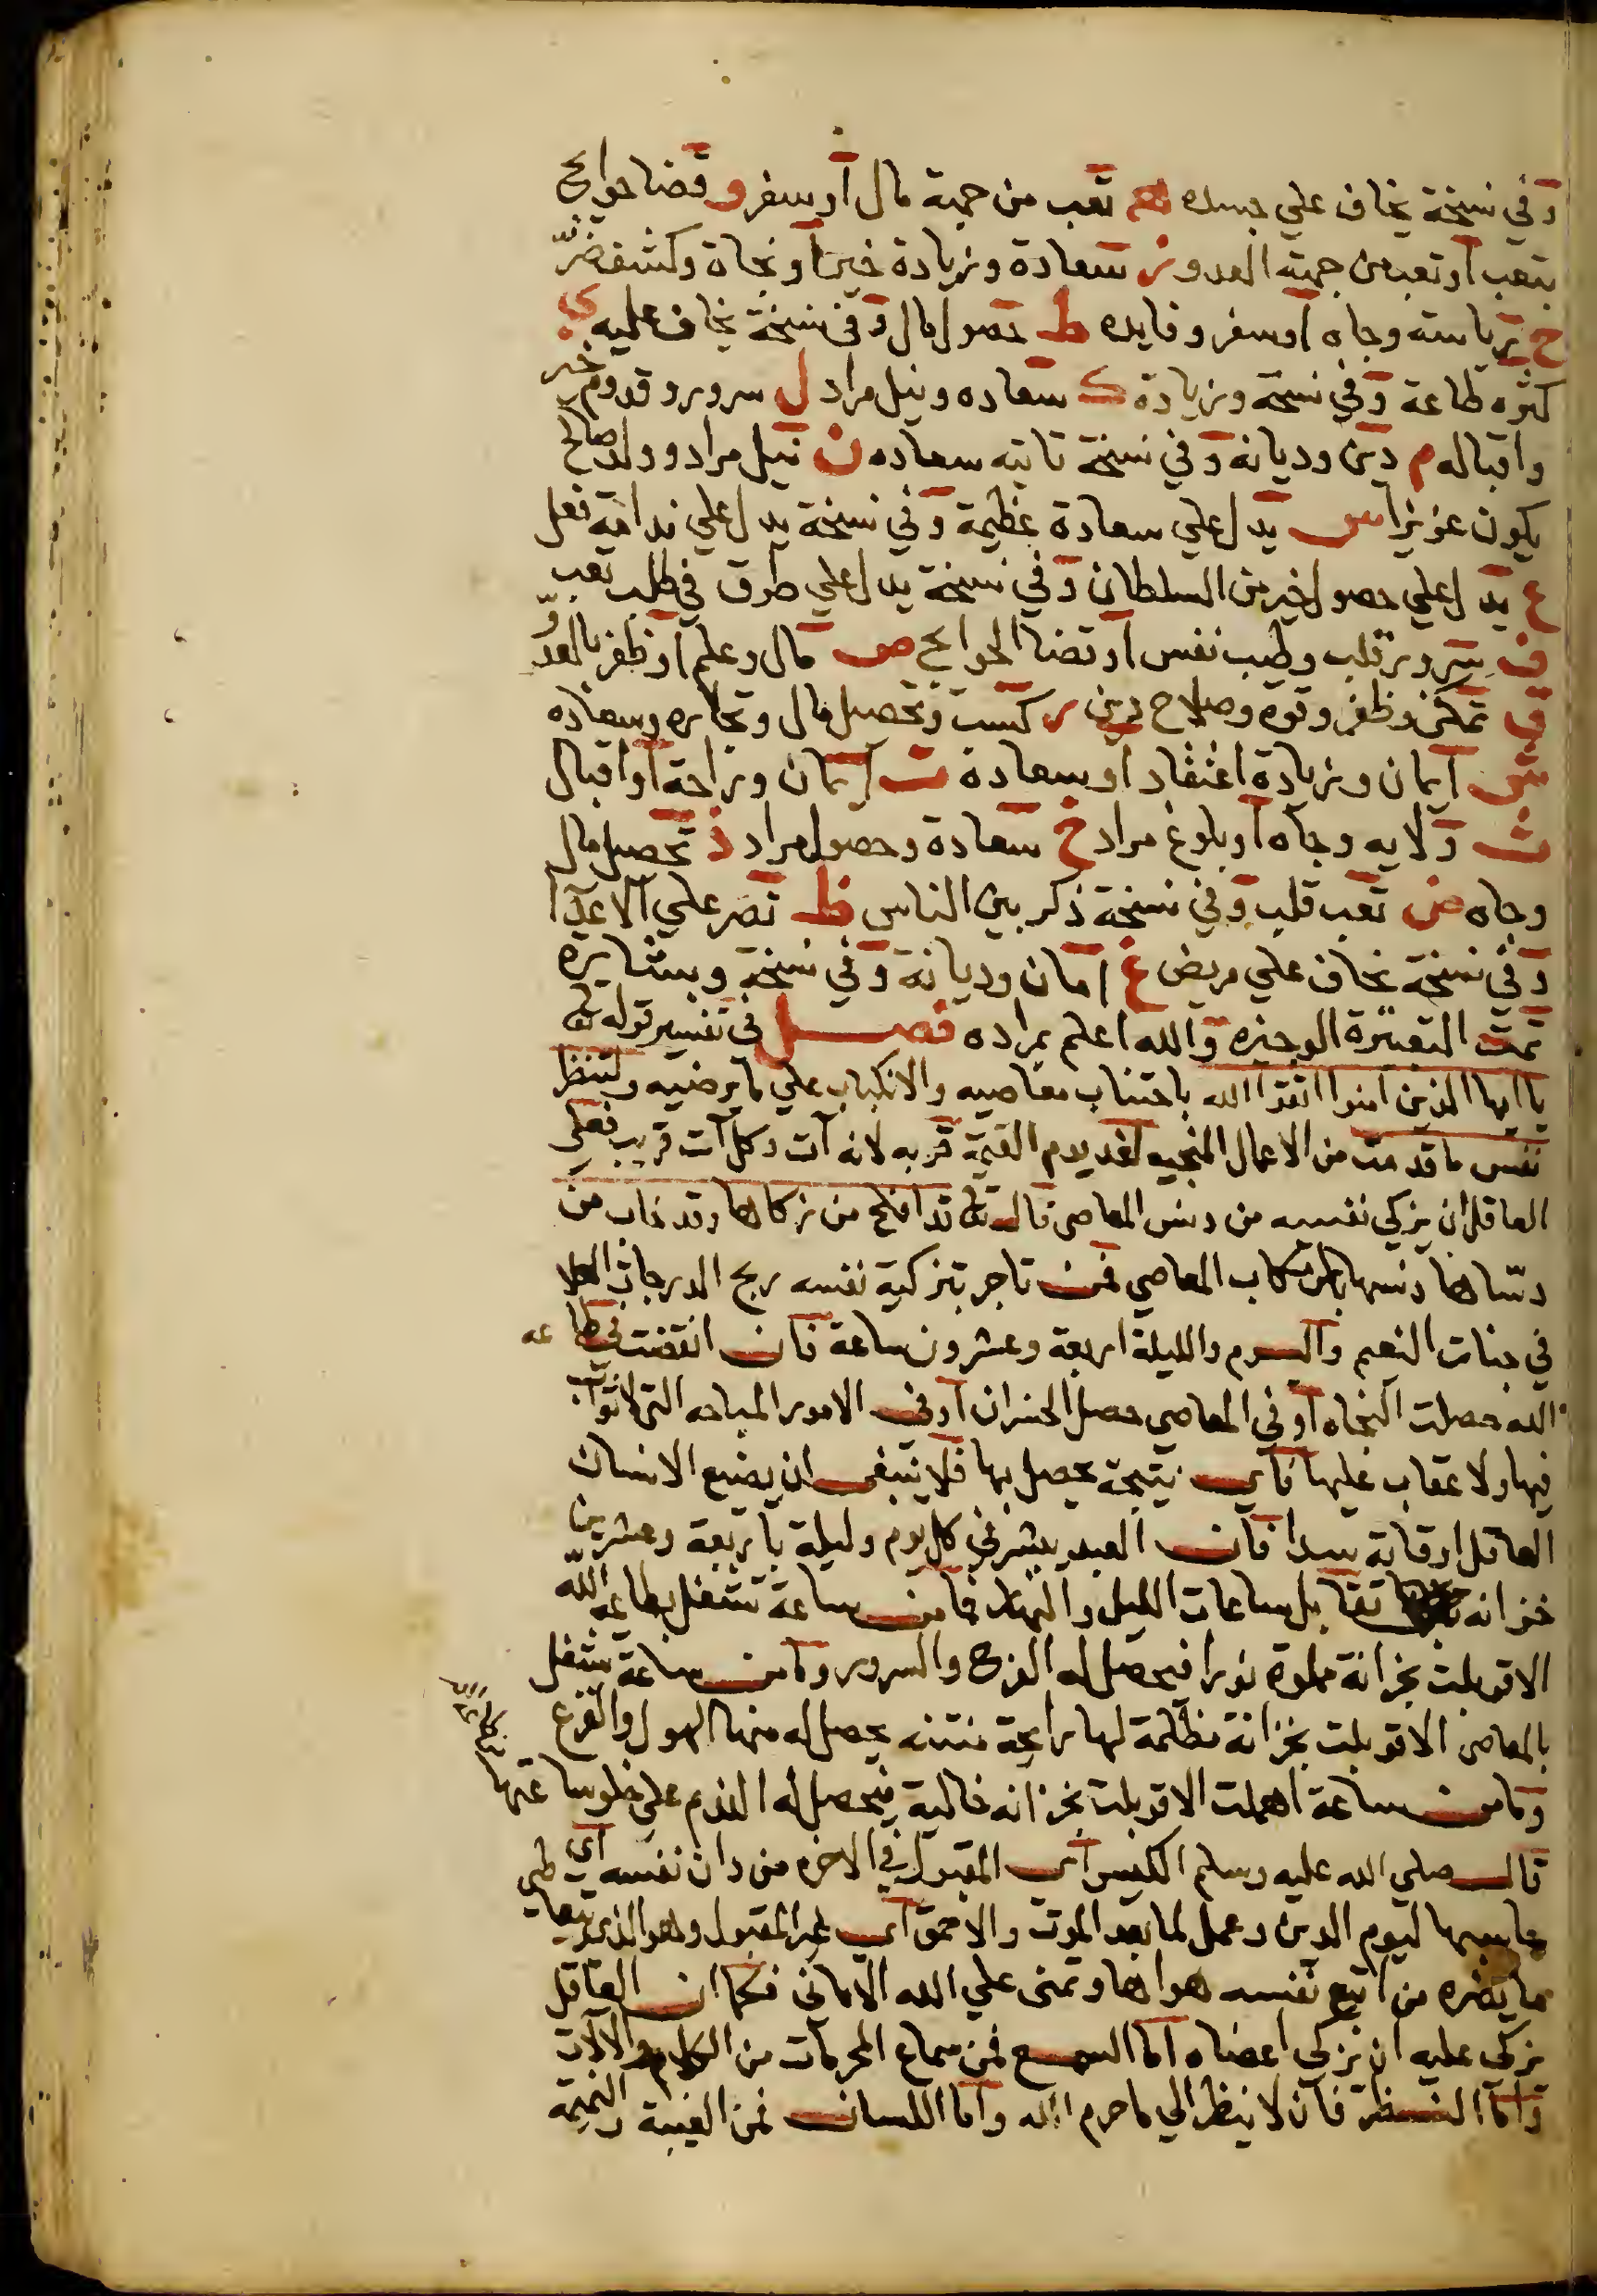 وفي نسخة يخاف علي جسده هـ تعب من جهة مال او سفر و قضا حوايج
بتعب او تعب من جهة العدو ز سعادة وزيادة خيرا ونجاة وكشف ضر
ح رياسته وجاه او سفر وفايده ط حصول مال وفي نسخة يخاف عليه ي
كثره طاعة وفي نسخة وزيادة ك سعاده ونيل مراد ل سرور وقدوم خير
واقباله م دين وديانه وفي نسخة تاتيه سعاده ن نيل مراد وولد صالح
يكون عزيزا س يدل علي سعادة عظيمة وفي نسخة يدل علي ندامة فعل
ع يدل علي حصول خير من السلطان وفي نسخة يدل علي طرق في طلب تعب
ف سرور قلب وطيب نفس او قضا الحوايج ص مال وعلم او ظفر بالعدو
ق تمكن وظفر وقوه وصلاح دين ر كسب وتحصيل مال وتجاره وسعاده
ش ايمان وزيادة اعتقاد او سعادة ت ايمان وراحة او اقبال
ث ولايه وجاه او بلوغ مراد خ سعادة وحصول مراد ذ تحصيل مال
وجاه ض تعب قلب وفي نسخة ذكر بين الناس ظ نصر علي الاعدا
وفي نسخة يخاف علي مريض غ امان وديانة وفي نسخة وبشاره
تمت التعبيرة الوجيزه والله اعلم بمراده فصل في تفسير قوله تعالى
يا ايها الذين امنوا اتقوا الله باجتناب معاصيه والانكباب علي ما يرضيه ولتنظر
نفس ما قدمت من الاعمال المنجيه لغد يوم القيمة قربه لانه آت وكل آت قريب فعلى
العاقل ان يزكي نفسه من دنس المعاصي قال تعالى قد افلح من زكاها وقد خاب من
دساها دنسها بارتكاب المعاصي فمن تاجر بتزكية نفسه ربح الدرجات العلا
في جنات النعيم واليوم والليلة اربعة وعشرون ساعة فان انقضت في طاعه
الله حصلت النجاه او في المعاصي حصل الخسران او في الامور المباحه التي لا ثواب
فيها ولا عقاب عليها فاي نتيجة يحصل بها فلا ينبغي ان يضيع الانسان
العاقل اوقاته سدا فان العبد ينشر في كل يوم وليلة باربعة وعشرين
خزانه تقابل ساعات الليل والنهار فما من ساعة تشغل بطاعة الله
الا قوبلت بخزانة مملوة نورا فيحصل له الفرح والسرور وما من ساعة تشغل
بالمعاصي الا قوبلت بخزانة مظلمة لها رايحة منتنه يحصل له منها الهول والفزع
وما من ساعة اهملت الا قوبلت بخزانه خالية فيحصل له الندم علي خلو ساعتها
قال صلي الله عليه وسلم الكيس اي المقبول في الاخره من دان نفسه اي
حاسبها ليوم الدين وعمل لما بعد الموت والاحمق اي غير المقبول وهو الذي
ما يضره من اتبع نفسه هواها وتمنى علي الله الاماني فكما ان العاقل
يزكي عليه ان يزكي اعضاه اما السمع فمن سماع المحرمات من الكلام والالات
واما النظر فان لا ينظر الي ما حرم الله واما اللسان فمن الغيبة والنميمه